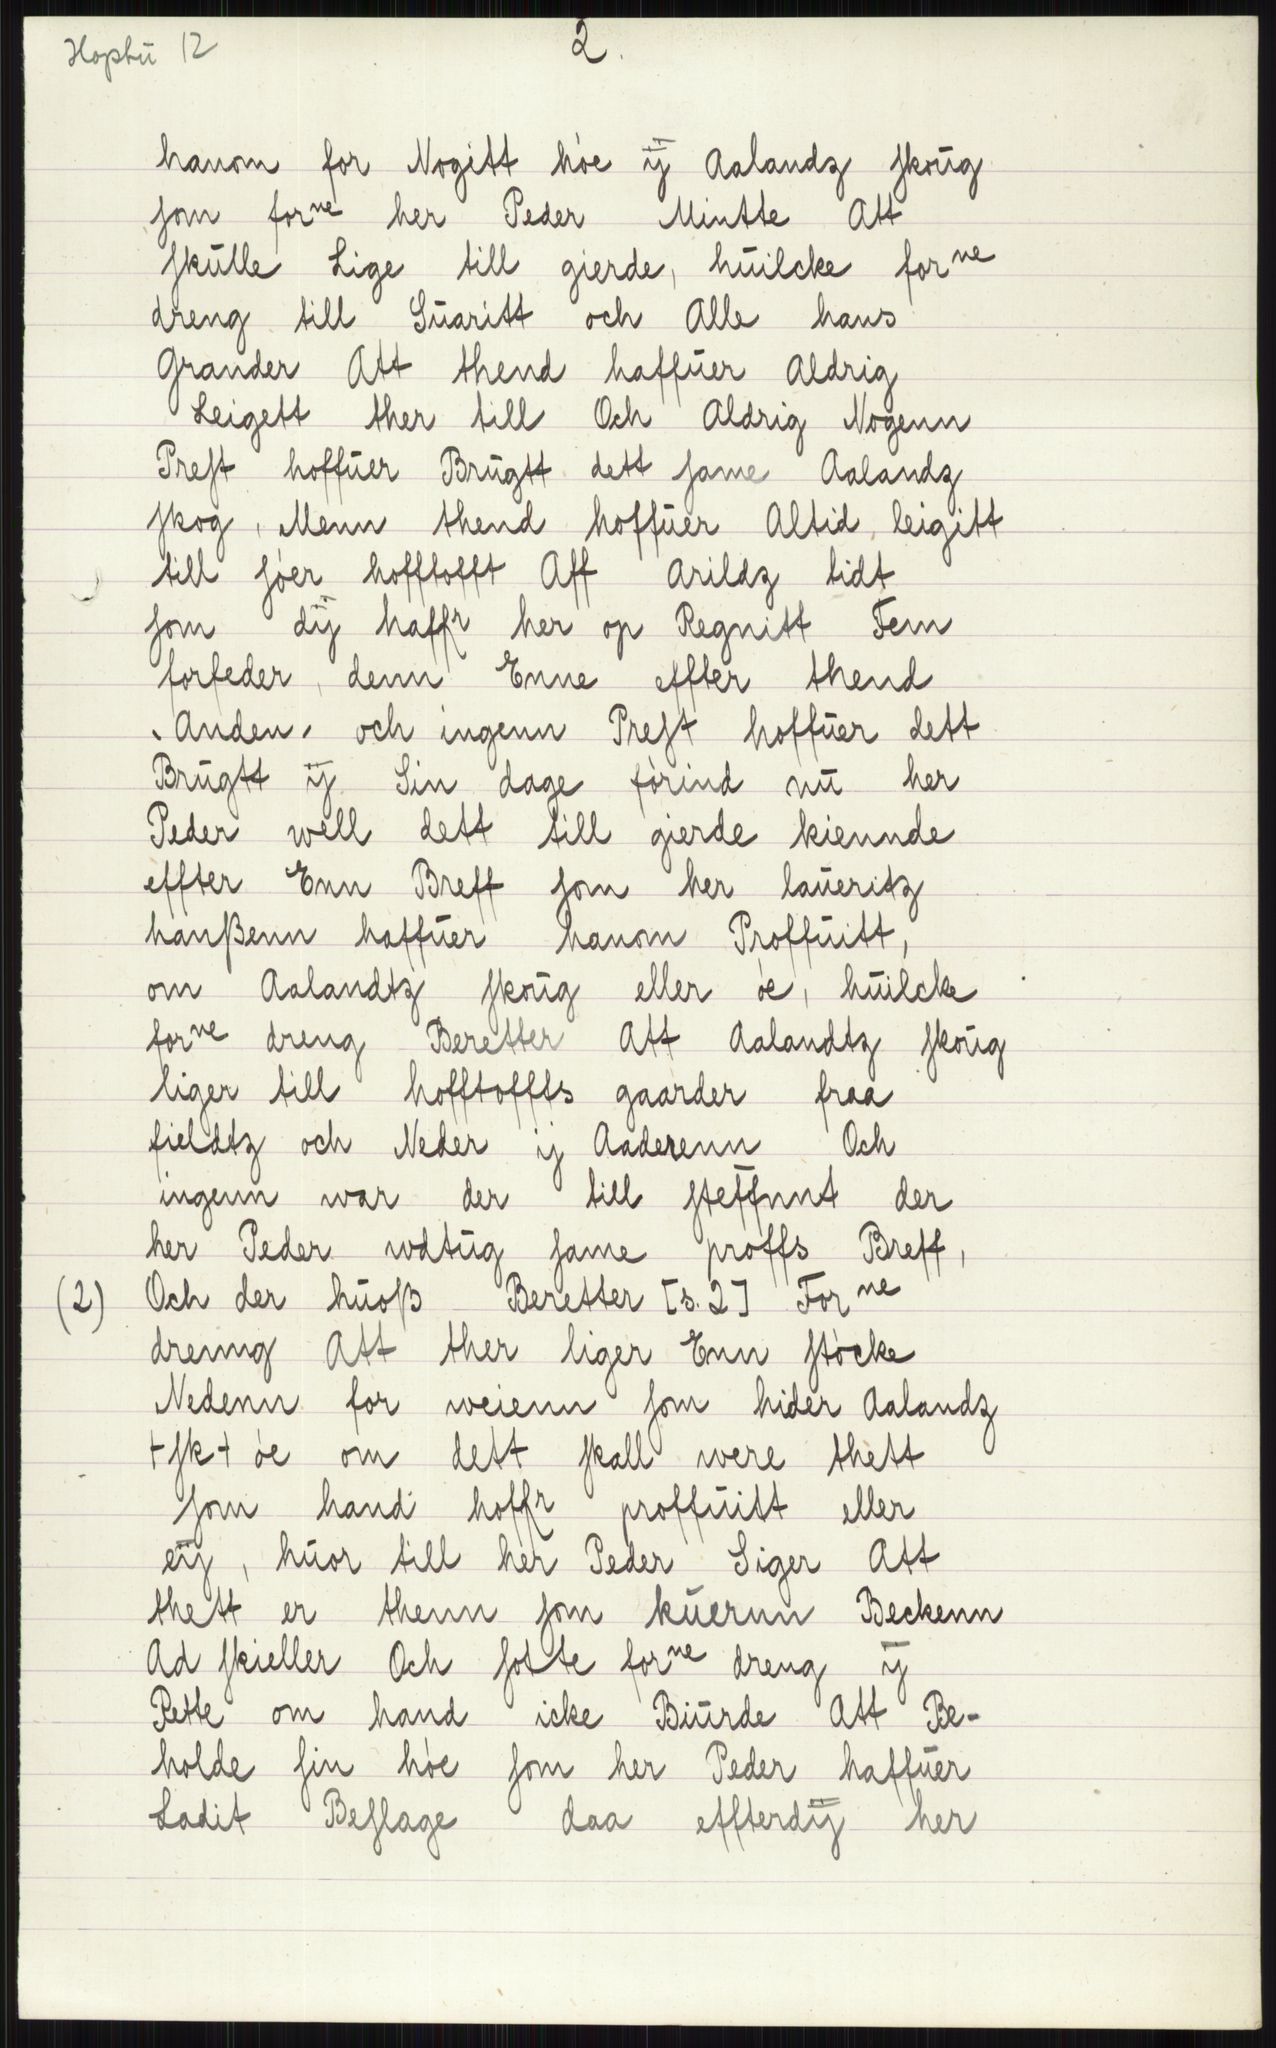 Hopstü 12
2.
hanom for Nogitt höe ÿ Aalandz skoüg
som forne her Peder Mintte Att
skülle Lige till gierde, hüilcke forne
dreng till Süaritt och Alle hans
Grander Att thend haffüer Aldrig
Leigett ther till Och Aldrig Nogenn
Prest hoffüer Brügtt dett same Aalandz
skog, Menn thend hoffüer Altid leigitt
till söer hofftofft Aff Arildz tidt
som dÿ haffr her op Regnitt Fem
forfeder, denn Enne effter thend
‵Anden′ och ingenn Prest hoffüer dett
Brügtt ÿ Sin dage förind nü her
Peder well dett till gierde kiennde
effter Enn Breff som her laüeritz
hanßenn haffüer hanom Proffüitt,
om Aalandtz skoüg eller öe, hüilcke
forne dreng Beretter Att Aalandtz skoüg
liger till hofftoffts gaarder fraa
fieldtz och Neder ij Aaderenn Och
ingenn war der till steffnnt der
her Peder wdtüg same proffs Breff,
(2) Och der hüoß Beretter [s. 2] Forne
drenng Att ther liger Enn stöcke
Nedenn for weienn som hider Aalandz
+sk+ öe om dett skall were thett
som hand hoffr proffüitt eller
eÿ, hüor till her Peder Siger Att
thett er thenn som küernn Beckenn
Ad skieller Och sotte forne dreng ÿ
Rette om hand icke Biürde Att Be-
holde sin höe som her Peder haffüer
Ladit Beslage daa effterdÿ her